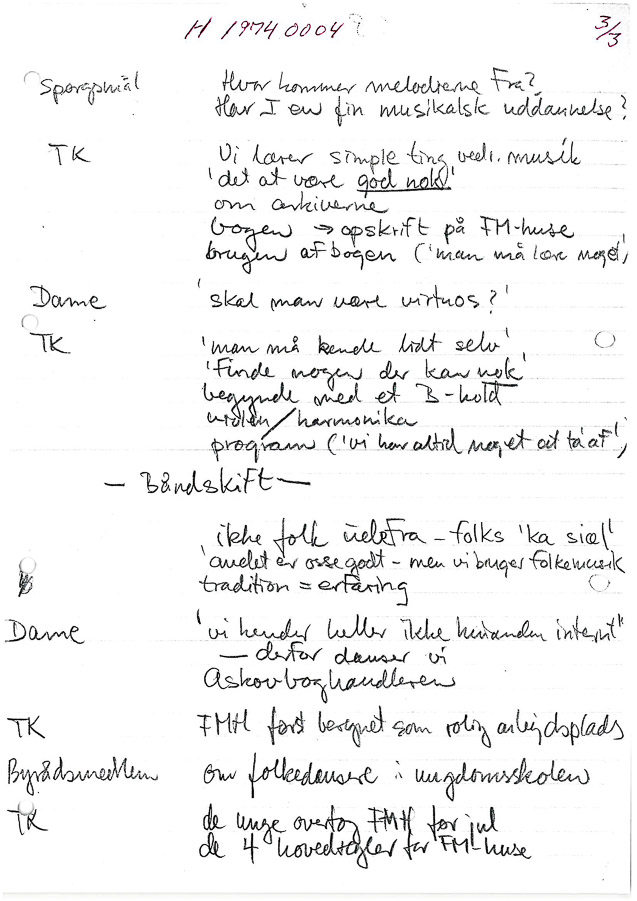 H 1974 0004 ? 3/3
Spørgsmål Hvor kommer melodierne Fra?
Har I en fin musikalsk uddannelse?
TK Vi lærer simple ting vedr. musik
'det at være god nok'
om arkiverne
bogen → opskrift på FM-huse
brugen af bogen ('man må lære noget')
Dame 'skal man være virtuos?'
TK 'man må kende lidt selv'
'Finde nogen der kan nok'
begynde med et B-hold
violin/harmonika
program ('vi har altid noget at ta' af')
— Båndskift —
ikke folk udefra – folks 'ka siæl'
'andet er osse godt – men vi bruger folkemusik
tradition = erfaring
Dame "vi kender heller ikke hinanden internt"
— derfor danser vi
Askovboghandleren
TK FMH først beregnet som rolig arbejdsplads
Byrådsmedlem om folkedansere i ungdomsskolen
TK de unge overtog FMH før jul
de 4 hovedregler for FM-huse